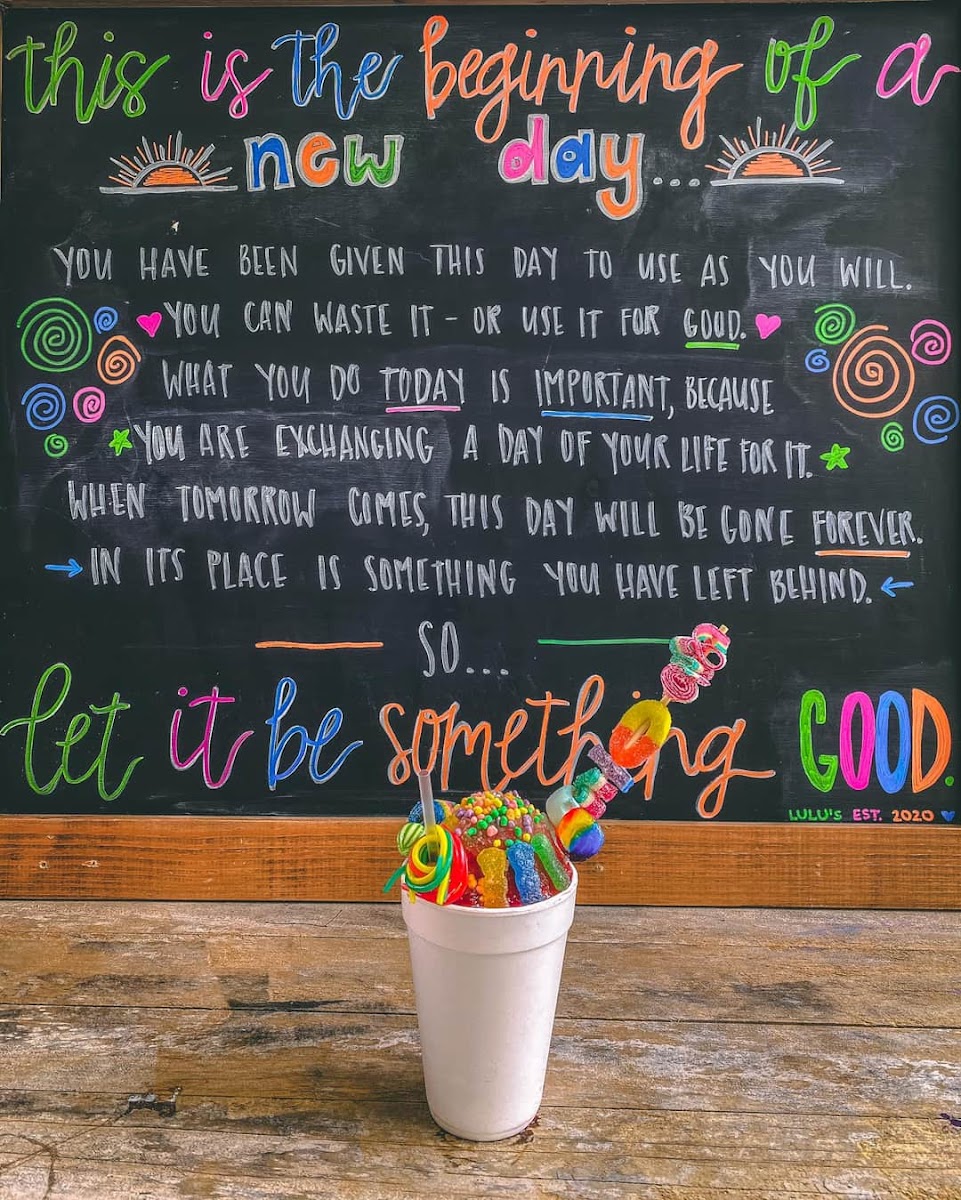 this is the beginning of a
new day...
YOU HAVE BEEN GIVEN THIS DAY TO USE AS YOU WILL.
YOU CAN WASTE IT - OR USE IT FOR GOOD.
WHAT YOU DO TODAY IS IMPORTANT, BECAUSE
YOU ARE EXCHANGING A DAY OF YOUR LIFE FOR IT.
WHEN TOMORROW COMES, THIS DAY WILL BE GONE FOREVER.
IN ITS PLACE IS SOMETHING YOU HAVE LEFT BEHIND.
SO...
let it be something GOOD.
LULU'S EST. 2020